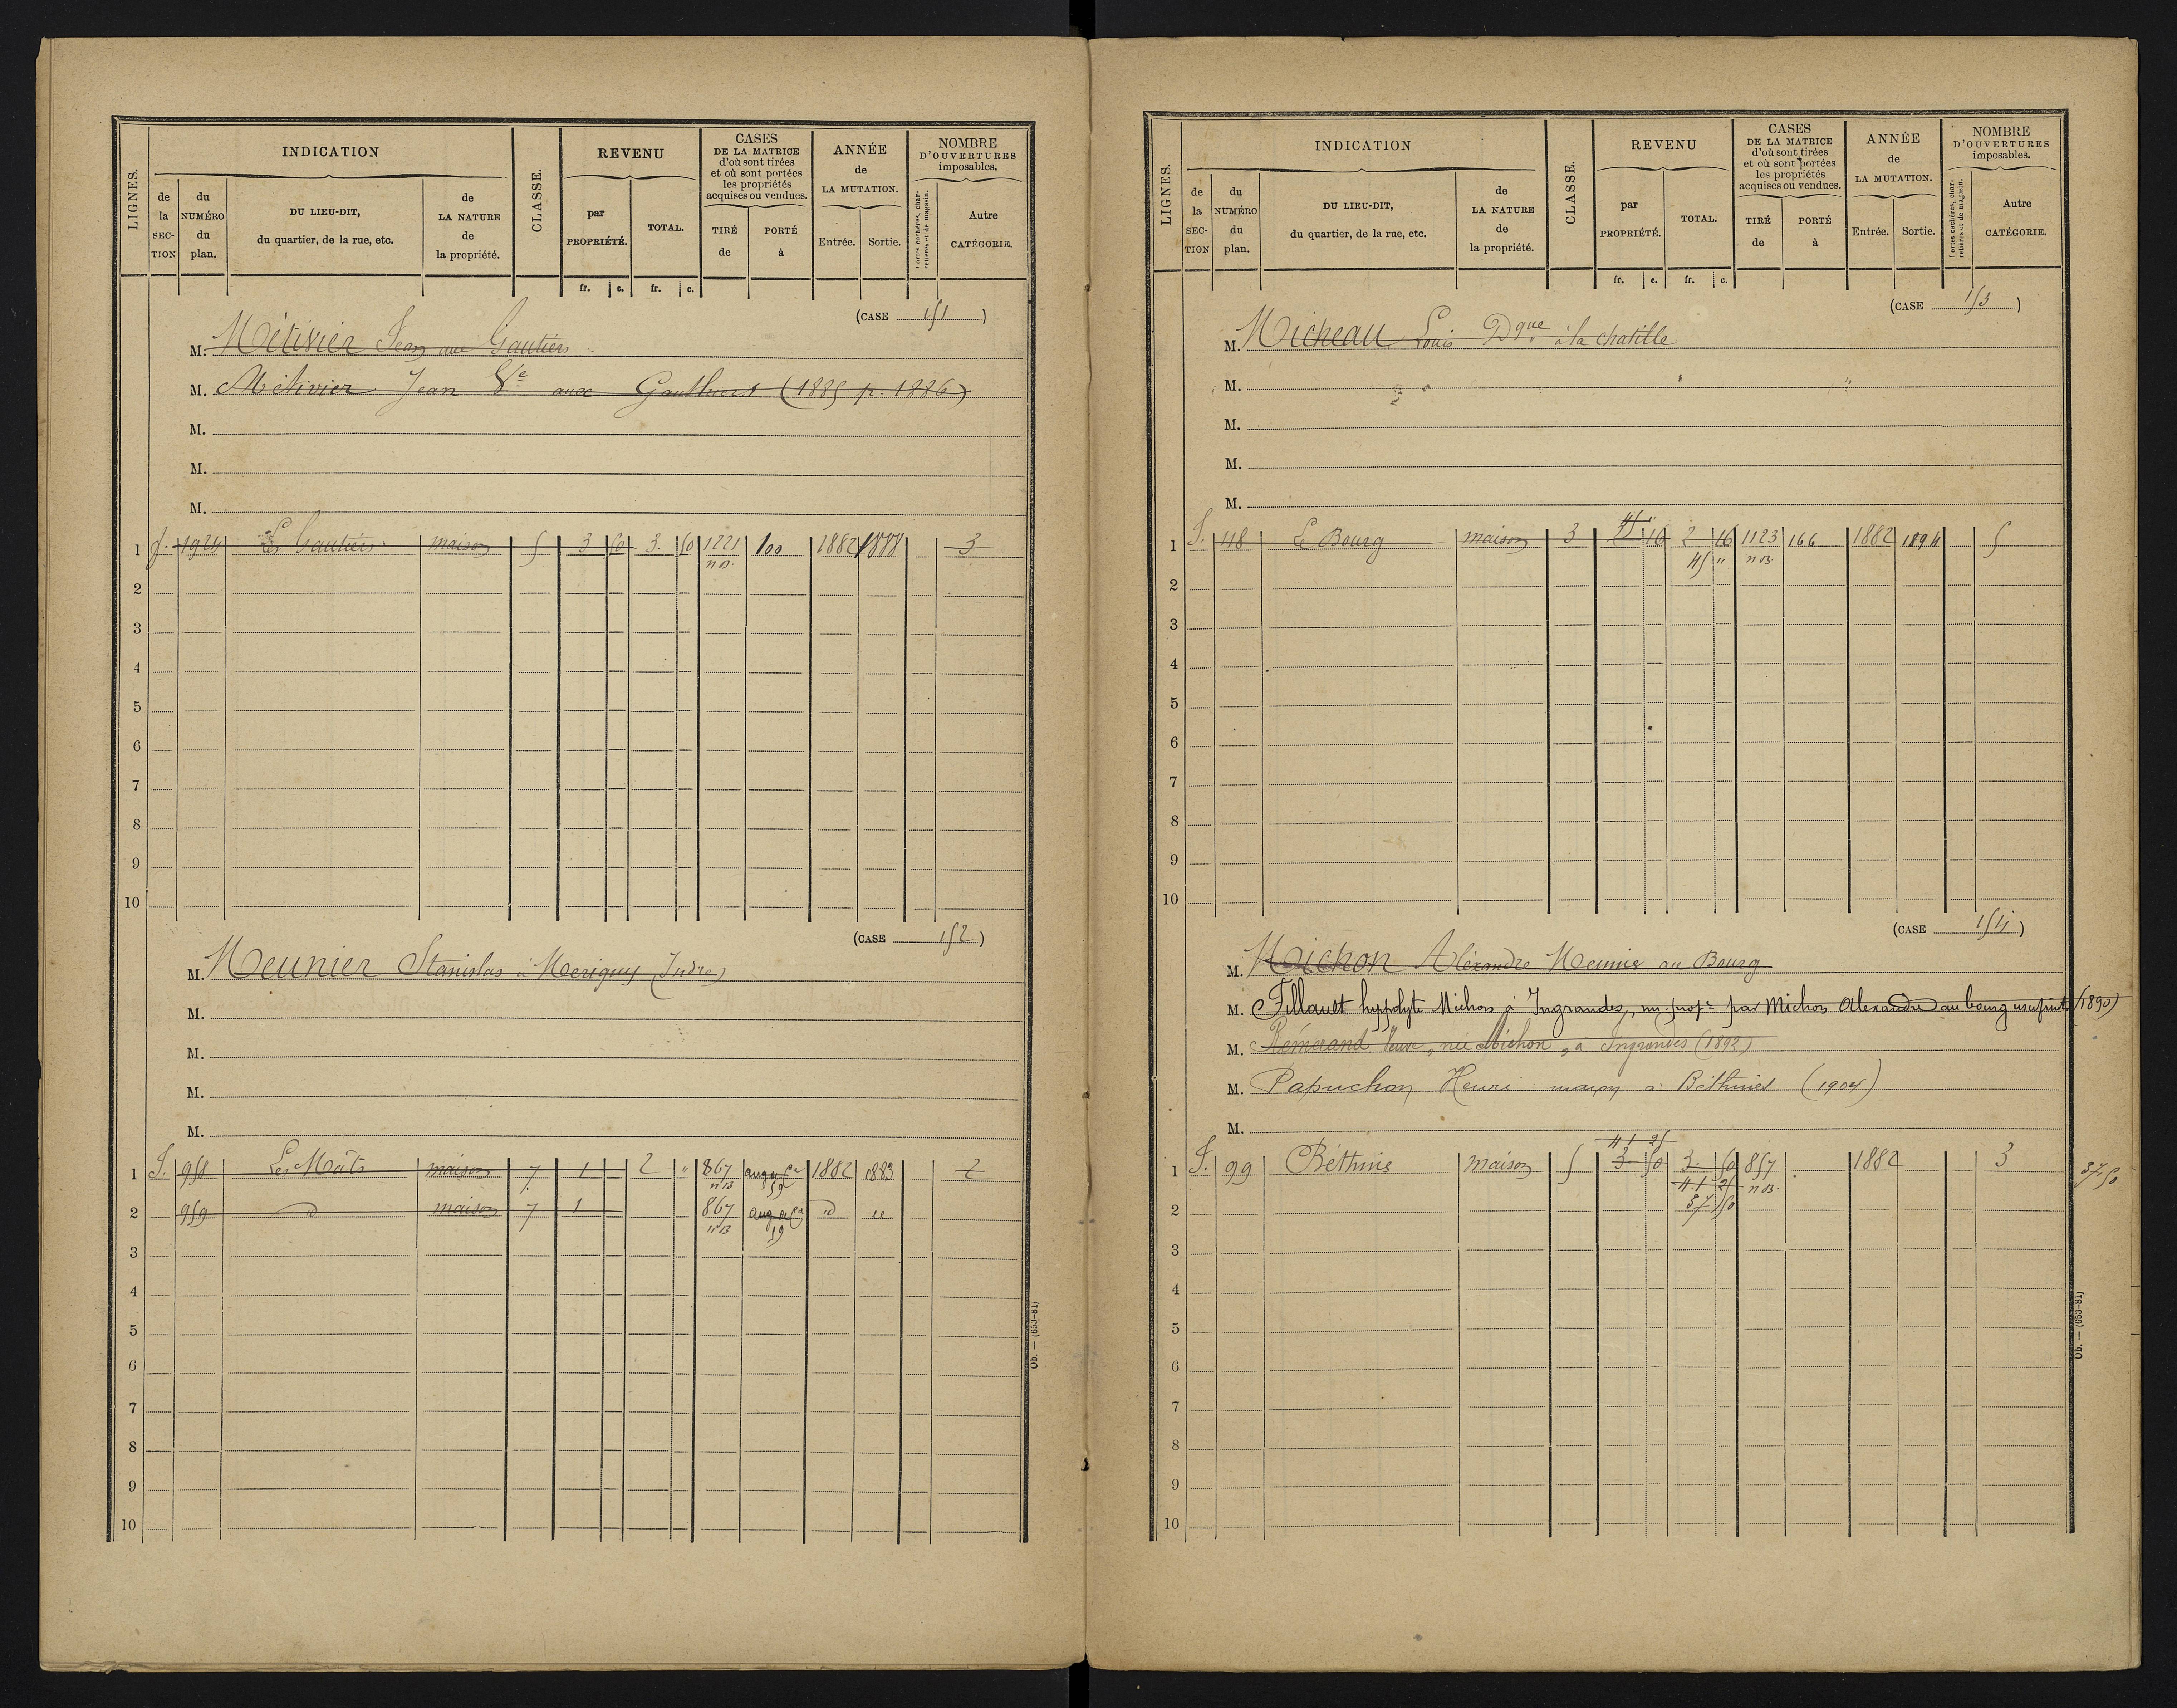 LIGNES.
INDICATION
CLASSE.
REVENU
CASES
DE LA MATRICE
d'où sont tirées
et où sont portées
les propriétés
acquises ou vendues.
ANNÉE
de
LA MUTATION.
NOMBRE
D'OUVERTURES
imposables.
de la SECTION
du NUMÉRO du plan.
DU LIEU-DIT,
du quartier, de la rue, etc.
de LA NATURE de la propriété.
par PROPRIÉTÉ.
TOTAL.
TIRÉ de
PORTÉ à
Entrée.
Sortie.
Portes cochères, charretières et de magasin.
Autre CATÉGORIE.
fr. c. fr. c.
(CASE 151)
M. Métivier Jean aux Gautiers
M. Métivier Jean Ve aux Gauthiers (1885 p. 1886)
M.
M.
M.
1 1924 Les Gautiers maison 5 3 50 3. 50 1221 100 1882 3
2
3
4
5
6
7
8
9
10
(CASE 152)
M. Meunier Stanislas à Merigny (Indre)
M.
M.
M.
M.
1 S. 958 Les Mats maison 7 1 2 " 867 1882 1883 2
59
2 959 d maison 7 1 867 id
59
3
4
5
6
7
8
9
10
Ob. — (653-81)
LIGNES.
INDICATION
CLASSE.
REVENU
CASES
DE LA MATRICE
d'où sont tirées
et où sont portées
les propriétés
acquises ou vendues.
ANNÉE
de
LA MUTATION.
NOMBRE
D'OUVERTURES
imposables.
de la SECTION
du NUMÉRO du plan.
DU LIEU-DIT,
du quartier, de la rue, etc.
de LA NATURE de la propriété.
par PROPRIÉTÉ.
TOTAL.
TIRÉ de
PORTÉ à
Entrée.
Sortie.
Portes cochères, charretières et de magasin.
Autre CATÉGORIE.
fr. c. fr. c.
(CASE 153)
M. Micheau Louis Dque à la chatille
M.
M.
M.
M.
1 S. 48 Le Bourg maison 3 16 2 16 1123 166 1882 1894 5
45 "
2
3
4
5
6
7
8
9
10
(CASE 154)
M. Michon Alexandre Meunier au Bourg
M. Fillault hyppolyte Michon à Ingrandes, nu prop. par Michon Alexandre au bourg usufruit (1890)
M. Rémerand Veuve, née Michon, à Ingrandes (1892)
M. Papuchon Henri maçon à Béthines (1904)
M.
41 25
1 S. 99 Béthine maison 5 3. 50 3. 50 857 1882 3 37.50
41 25
2 37 50
3
4
5
6
7
8
9
10
Ob. — (653-81)